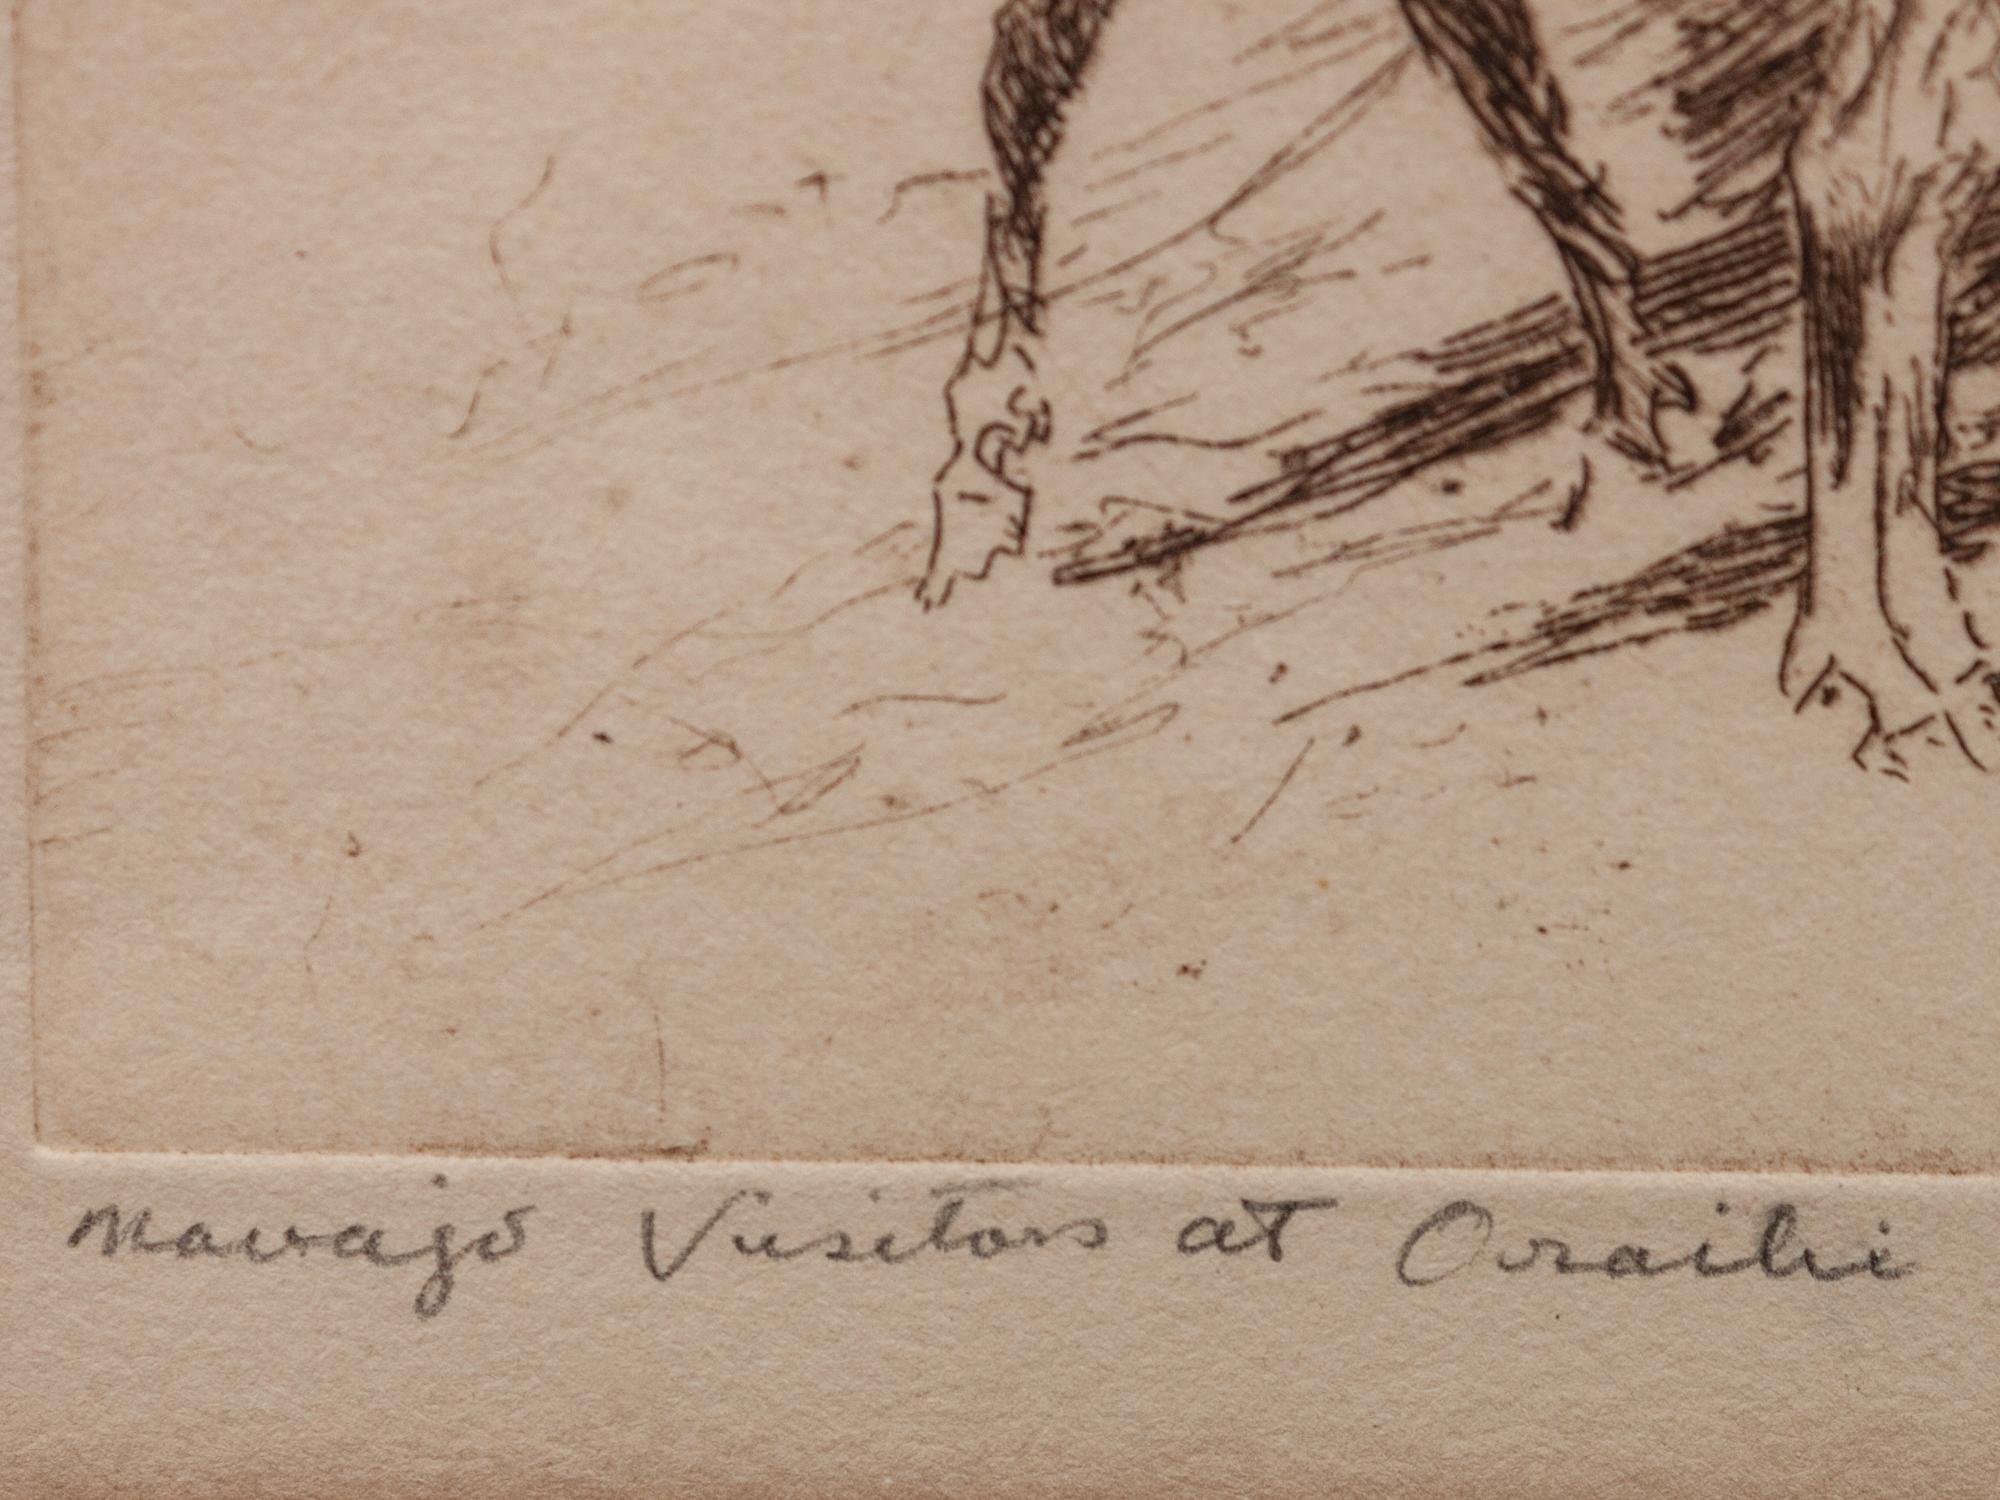 Navajo Visitors at Oraibi